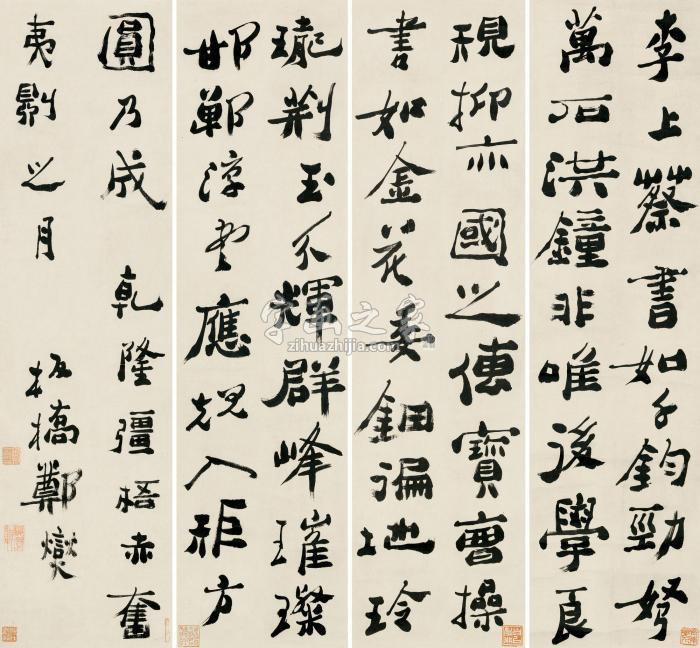 李上蔡書如千鈞勁弩
萬石洪鐘非唯後學良
規抑亦國之傳寶曹操
書如金花委鈿遍地玲
瓏荆玉分輝群峰璀璨
邯鄲淳書應規入矩方
圓乃成 乾隆彊梧赤奮
夷則之月 板橋鄭燮
字画之家
zihuazhijia.com